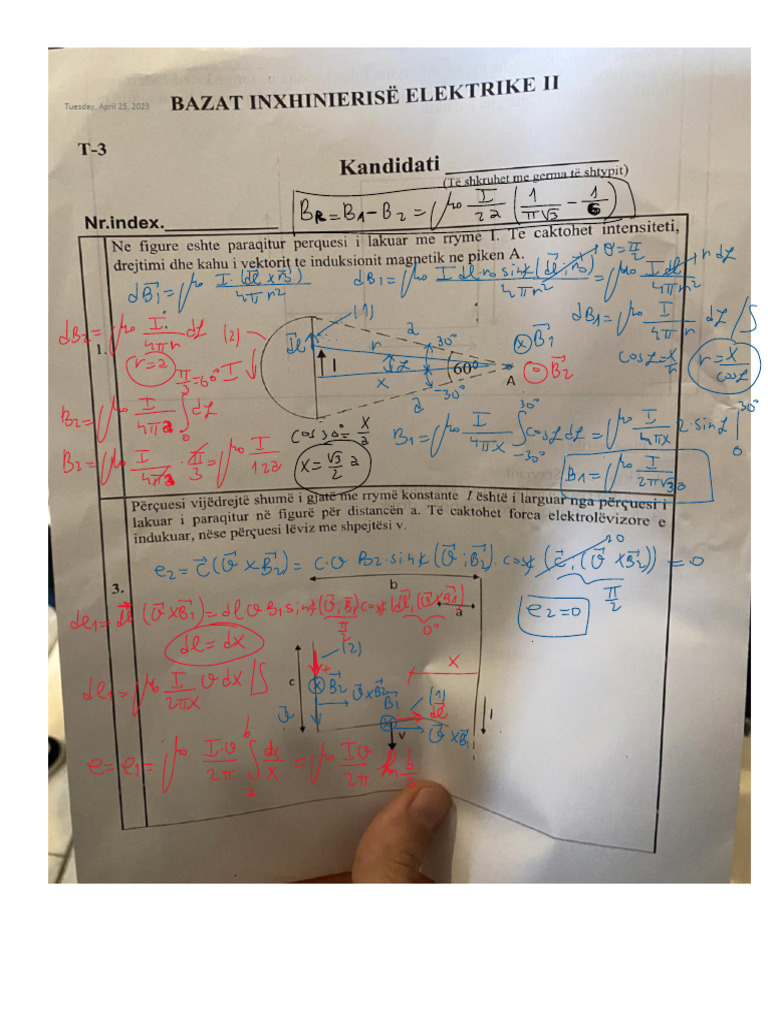 Tuesday, April 25, 2023
BAZAT INXHINIERISË ELEKTRIKE II
T-3
Kandidati
(Të shkruhet me germa të shtypit)
B_R = B_1 - B_2 = μ_0 I/2a (1/π√3 - 1/6)
Nr.index.
Ne figure eshte paraqitur perquesi i lakuar me rryme I. Te caktohet intensiteti,
drejtimi dhe kahu i vektorit te induksionit magnetik ne piken A.
dB_1 = μ_0 I·(dl × r_0)/4πr²
dB_1 = μ_0 I dl·r_0 sin∢(dl, r_0)/4πr² = μ_0 I dl/4πr²
θ = π/2
r dα
dB_2 = μ_0 I/4πr dα
(2)
(1)
dB_1 = μ_0 I/4πr dα /∫
1.
r = a
dl
I
r
a
30°
α
60°
x
A
B_1
B_2
cos α = x/r
r = x/cos α
π/3 = 60°
I
-30°
a
B_2 = μ_0 I/4πa ∫ dα
cos 30° = x/a
B_1 = μ_0 I/4πx ∫ cos α dα = μ_0 I/4πx 2·sin α |
30°
-30°
30°
0
B_2 = μ_0 I/4πa · π/3 = μ_0 I/12a
x = √3/2 a
B_1 = μ_0 I/2π√3a
Përçuesi vijëdrejtë shumë i gjatë me rrymë konstante I është i larguar nga përçuesi i
lakuar i paraqitur në figurë për distancën a. Të caktohet forca elektrolëvizore e
indukuar, nëse përçuesi lëviz me shpejtësi v.
e_2 = c(v × B_2) = c·v B_2·sin∢(v; B_2)·cos∢(c, (v × B_2)) = 0
π/2
3.
b
e_2 = 0
de_1 = dl (v × B_1) = dl v B_1 sin∢(v; B_1) cos∢(dl, (v × B_1))
π/2
0°
a
dl = dx
(2)
c
x
de_1 = μ_0 I/2πx v dx /∫
B_2
v × B_2
B_1
(1)
dl
I
v
v
v × B_1
e = e_1 = μ_0 I·v/2π ∫ dx/x = μ_0 Iv/2π ln b/a